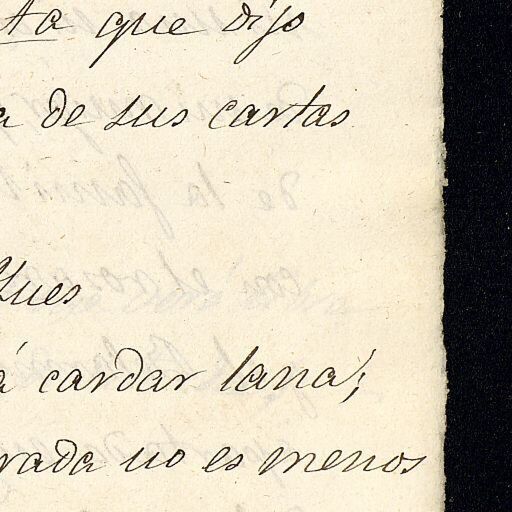 ta que dijo
a de sus cartas
ques
á cardar lana;
rada no es menos